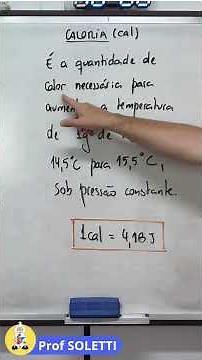 CALORIA (cal)
É a quantidade de
calor necessária para
a temperatura
de 1g de
14,5°C para 15,5°C,
sob pressão constante.
1cal = 4,18J
Prof SOLETTI